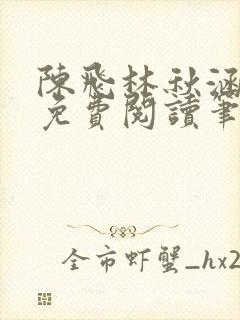 陳飛林秋涵
免費閱讀筆
全市虾蟹_hx2